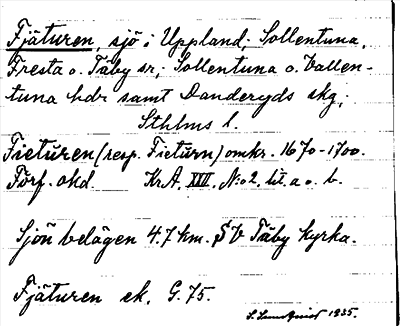 Fjäturen, sjö i Uppland; Sollentuna,
Fresta o. Täby sr; Sollentuna o. Vallen-
tuna hdr samt Danderyds skg;
Sthlms l.
Fieturen (resp. Fieturn) omkr. 1670-1700.
Förf. okd. KrA. XXII. No 2. lit. a o. b.
Sjön belägen 4.7 km. SV Täby kyrka.
Fjäturen ek. G. 75.
1935.